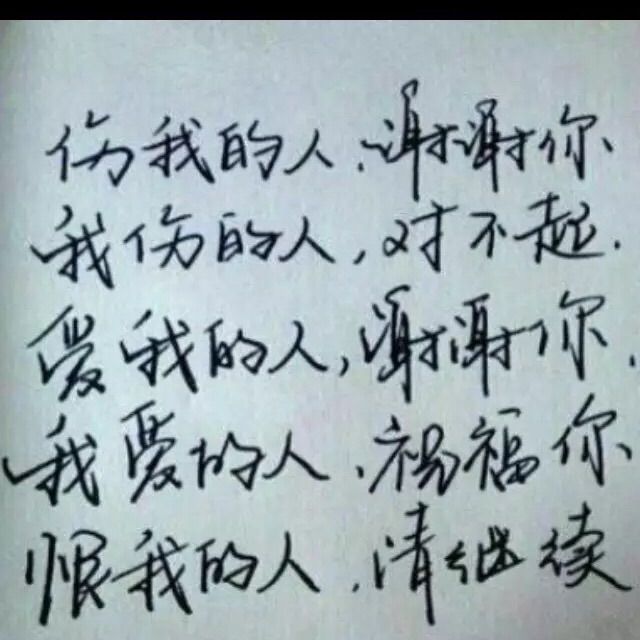 伤我的人、谢谢你、
我伤的人，对不起.
爱我的人，谢谢你.
我爱的人、祝福你、
恨我的人.请继续